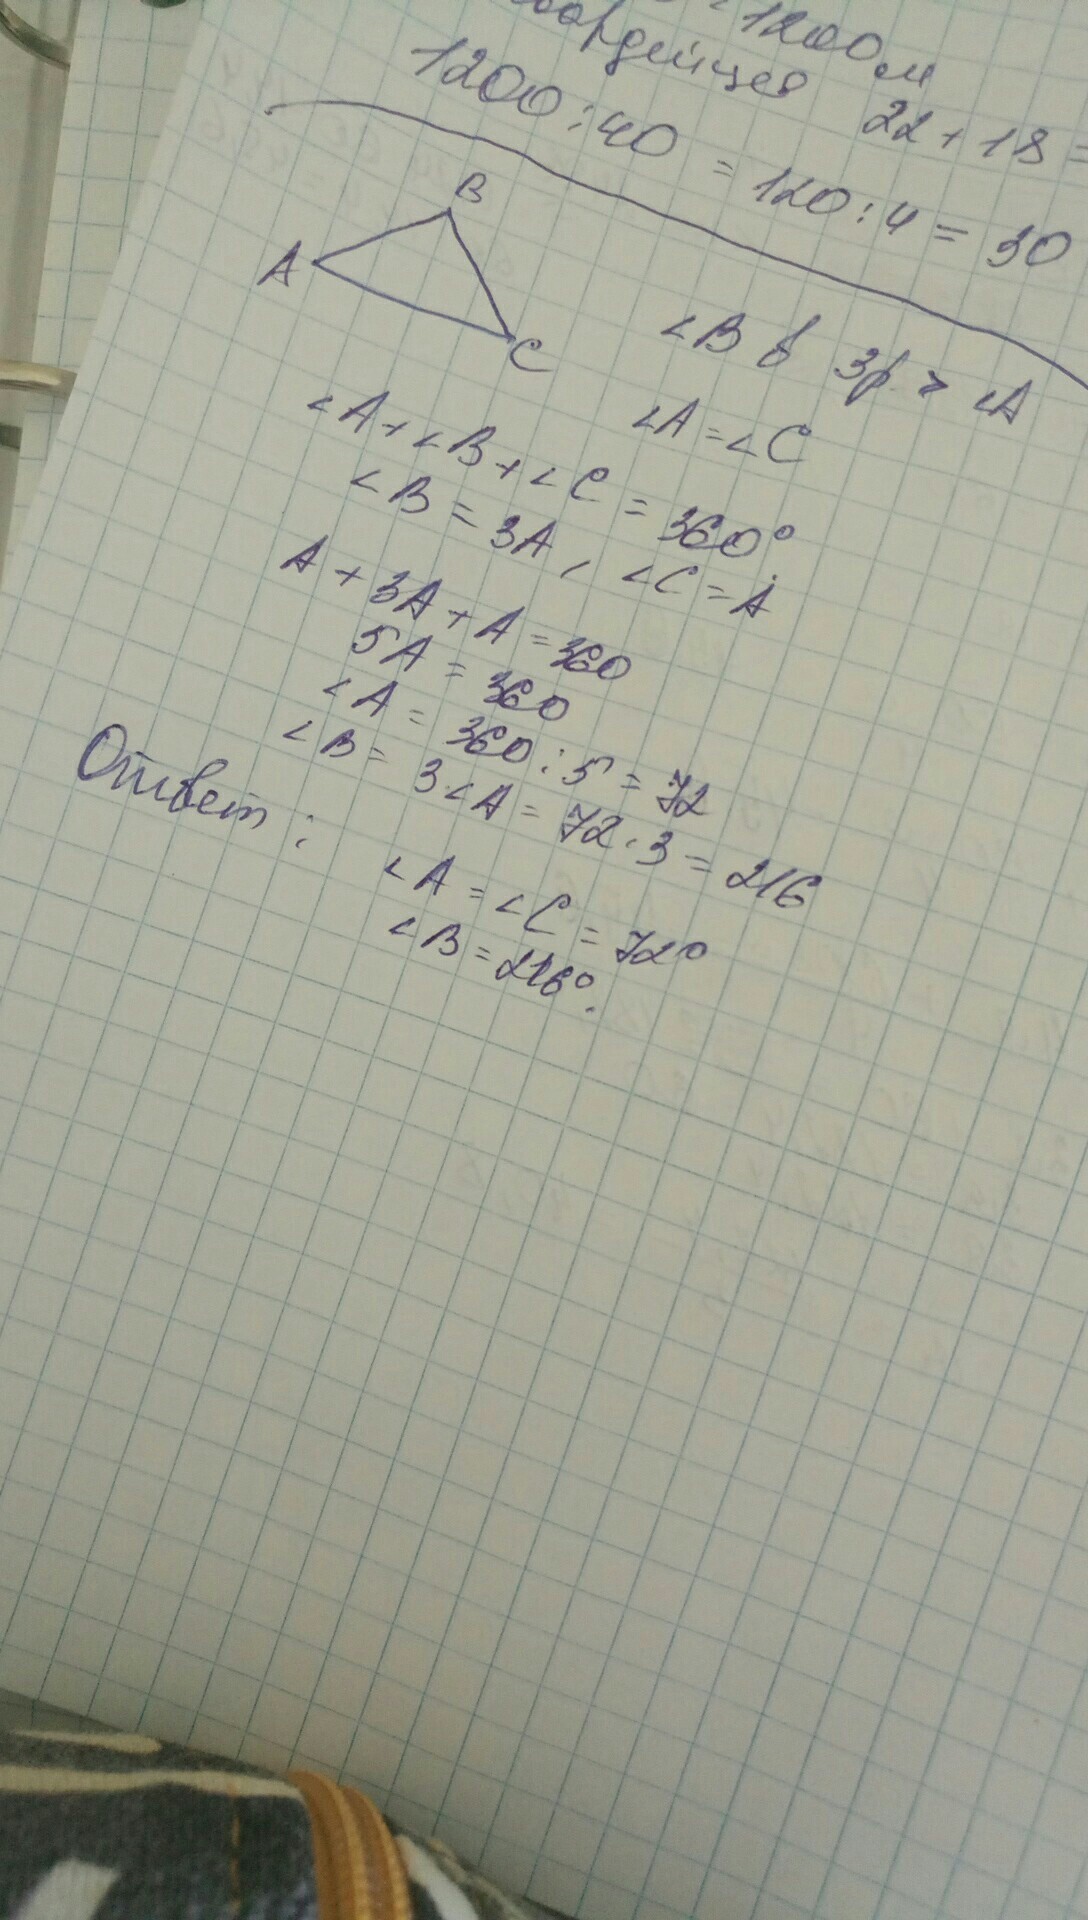 1200м
22 + 18 =
1200 : 40 = 120 : 4 = 30
B
A
C
∠B в 3р. > ∠A
∠A = ∠C
∠A + ∠B + ∠C = 360°
∠B = 3A, ∠C = A
A + 3A + A = 360
5A = 360
∠A = 360 : 5 = 72
∠B = 3∠A = 72 · 3 = 216
Ответ:
∠A = ∠C = 72°
∠B = 216°.